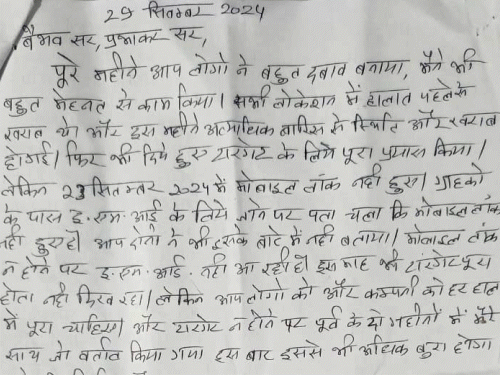 29 सितम्बर 2024
वैभव सर, प्रभाकर सर,
पूरे महीने आप लोगो ने बहुत दबाव बनाया, मैने भी
बहुत मेहनत से काम किया। सभी लोकेशन में हालात पहले से
खराब थे। और इस महीने अत्याधिक बारिश से स्थिति और खराब
होगई। फिर भी दिये हुए टारगेट के लिये पूरा प्रयास किया।
लेकिन 23 सितम्बर 2024 में मोबाइल लॉक नही हुए। ग्राहको
के पास इ. एम. आई के लिये जाने पर पता चला कि मोबाइल लॉक
नही हुए है। आप दोनो ने भी इसके बारे में नही बताया। मोबाइल लॉक
न होने पर इ. एम. आई. नही आ रही है। इस माह भी टारगेट पूरा
होता नही दिख रहा। लेकिन आप लोगो को और कम्पनी को हर हाल
में पूरा चाहिए। और टारगेट न होने पर पूर्व के दो महीनो में मेरे
साथ जो बर्ताव किया गया इस बार इससे भी अधिक बुरा होगा